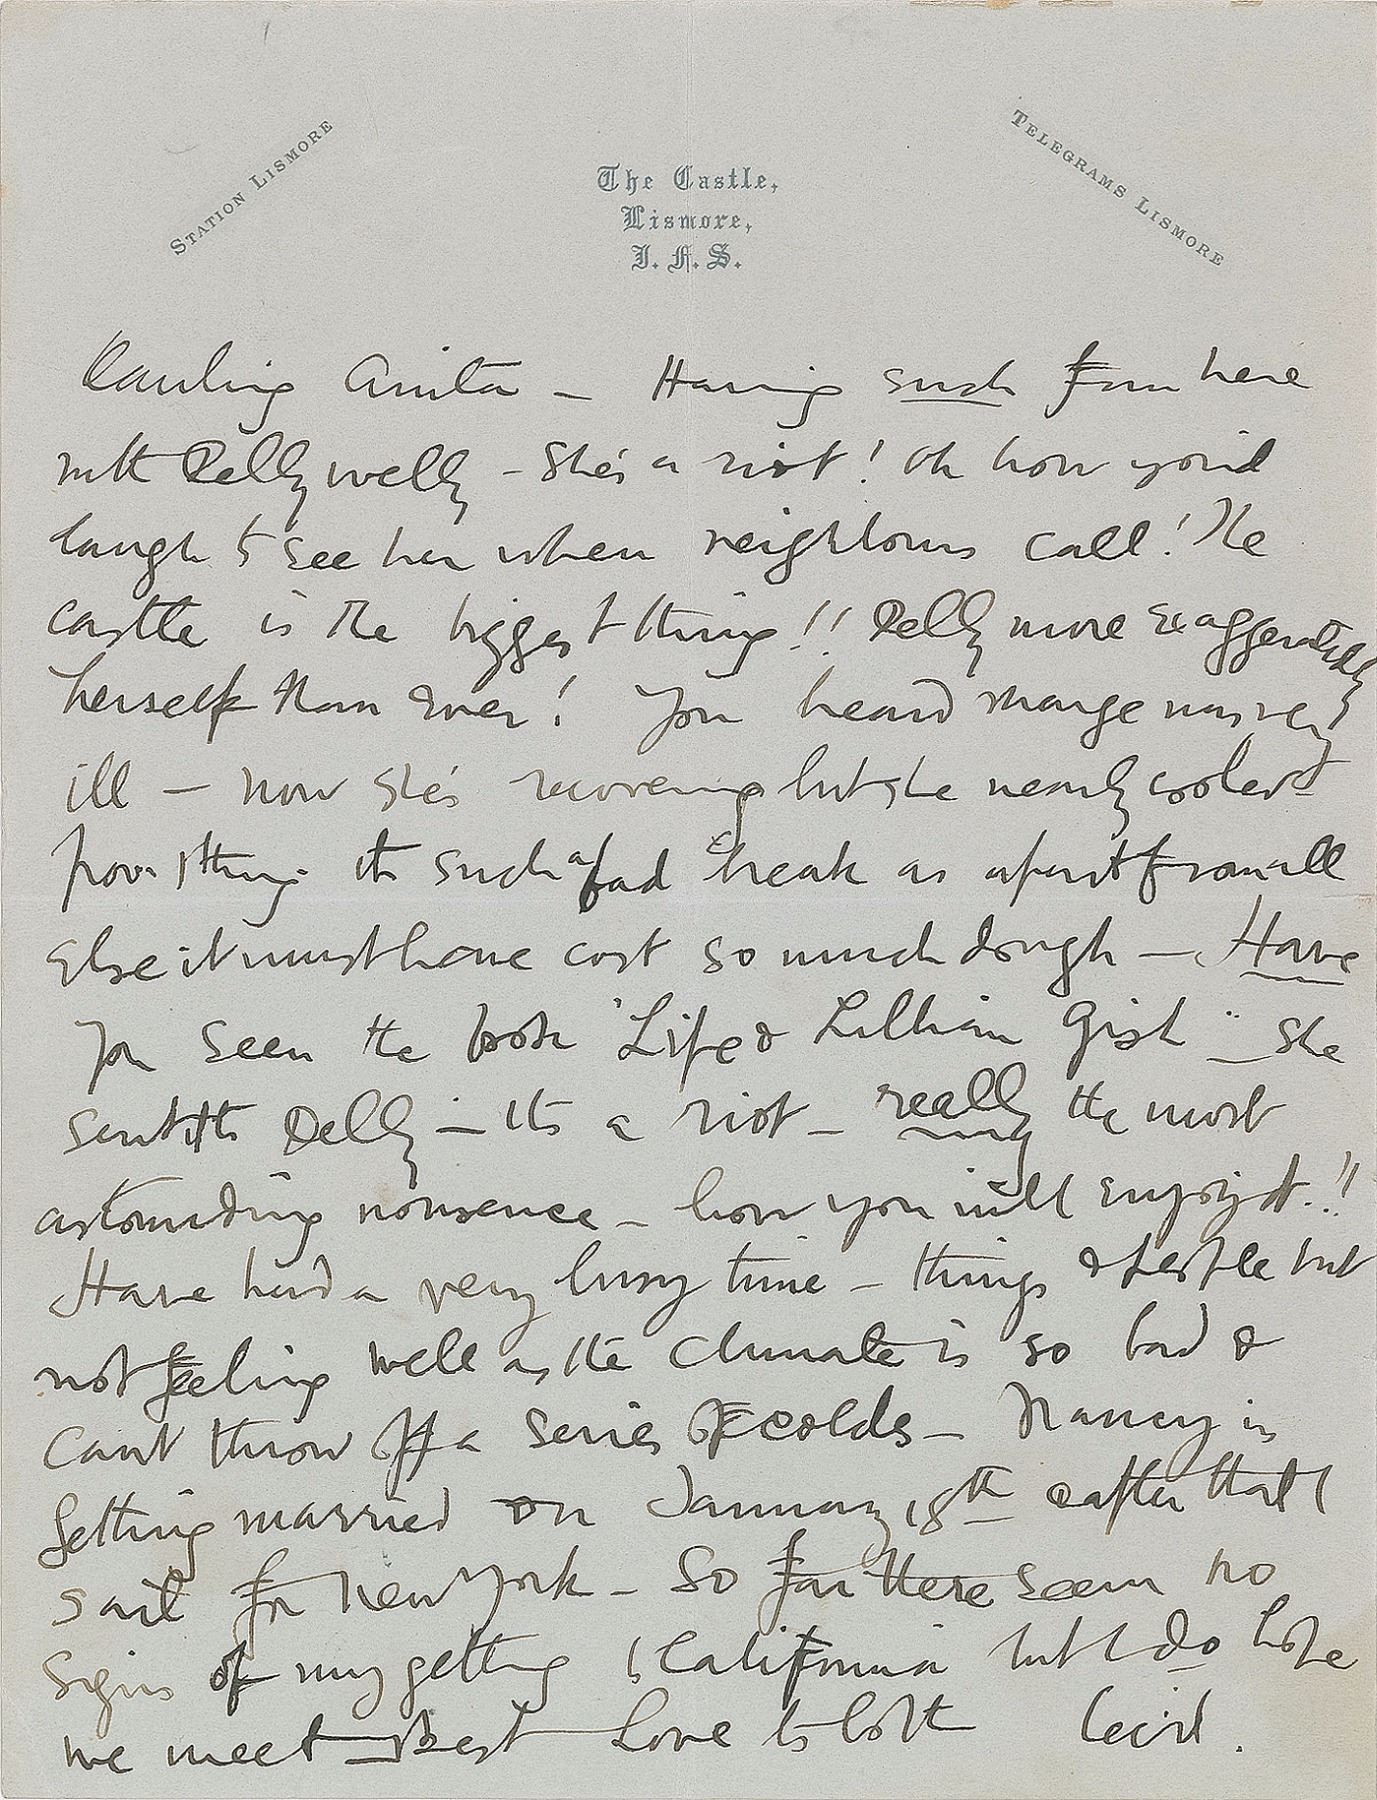 STATION LISMORE
TELEGRAMS LISMORE
The Castle,
Lismore,
I.F.S.
Darling Anita – Having such fun here
with Delly welly – she's a riot! Oh how you'd
laugh to see her when neighbours call! The
castle is the biggest thing!! Delly more exaggeratedly
herself than ever! You heard Marge was very
ill – now she's recovering but she nearly
Poor thing. its such a bad break as apart from all
else it must have cost so much dough – Have
you seen the book "Life & Lillian Gish" – she
sent it to Delly – its a riot – really the most
astounding nonsence – how you will enjoy it..!!
Have had a very busy time – things & people but
not feeling well as the climate is so bad &
cant throw off a series of colds – Nancy is
getting married on January 18th & after that I
sail for New York – So far there seem no
signs of my getting to California but I do hope
we meet – Best Love to both Cecil.